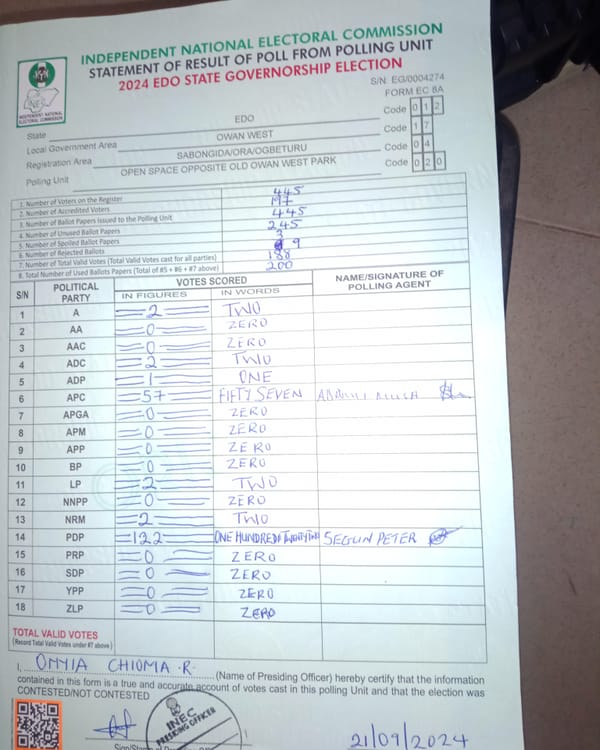 INDEPENDENT NATIONAL ELECTORAL COMMISSION
STATEMENT OF RESULT OF POLL FROM POLLING UNIT
2024 EDO STATE GOVERNORSHIP ELECTION
INEC
INDEPENDENT NATIONAL ELECTORAL COMMISSION
S/N EG/0004274
FORM EC 8A
State EDO Code 0 1 2
Local Government Area OWAN WEST Code 1 7
Registration Area SABONGIDA/ORA/OGBETURU Code 0 4
Polling Unit OPEN SPACE OPPOSITE OLD OWAN WEST PARK Code 0 2 0
1. Number of Voters on the Register 445
2. Number of Accredited Voters
3. Number of Ballot Papers Issued to the Polling Unit 445
4. Number of Unused Ballot Papers 245
5. Number of Spoiled Ballot Papers 3
6. Number of Rejected Ballots 9
7. Number of Total Valid Votes (Total Valid Votes cast for all parties) 188
8. Total Number of Used Ballots Papers (Total of #5 + #6 + #7 above) 200
S/N POLITICAL PARTY VOTES SCORED NAME/SIGNATURE OF POLLING AGENT
IN FIGURES IN WORDS
1 A 2 TWO
2 AA 0 ZERO
3 AAC 0 ZERO
4 ADC 2 TWO
5 ADP 1 ONE
6 APC 57 FIFTY SEVEN
7 APGA 0 ZERO
8 APM 0 ZERO
9 APP 0 ZERO
10 BP 0 ZERO
11 LP 2 TWO
12 NNPP 0 ZERO
13 NRM 2 TWO
14 PDP 122 ONE HUNDRED TWENTY TWO SEGUN PETER
15 PRP 0 ZERO
16 SDP 0 ZERO
17 YPP 0 ZERO
18 ZLP 0 ZERO
TOTAL VALID VOTES
(Record Total Valid Votes under #7 above)
I, CHIOMA R. (Name of Presiding Officer) hereby certify that the information
contained in this form is a true and accurate account of votes cast in this polling Unit and that the election was
CONTESTED/NOT CONTESTED
INEC
PRESIDING OFFICER
21/09/2024